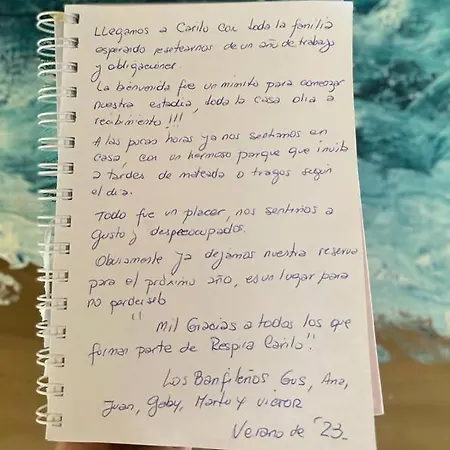 Llegamos a Cariló con toda la familia
esperando resetearnos de un año de trabajo
y obligaciones.
La bienvenida fue un mimito para comenzar
nuestra estadía, toda la casa olía a
recibimiento!!!
A las pocas horas ya nos sentimos en
casa, con un hermoso parque que invita
a tardes de mateada o tragos según
el día.
Todo fue un placer, nos sentimos a
gusto y despreocupados.
Obviamente ya dejamos nuestra reserva
para el próximo año, es un lugar para
no perdérselo
"Mil Gracias a todos los que
forman parte de Respira Cariló"!
Los Banfileños Gus, Ana,
Juan, Gaby, Marta y Victor
Verano de '23_